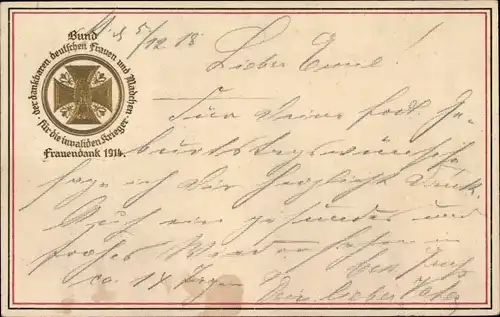 Bund
der dankbaren deutschen Frauen und Mädchen
für die invaliden Krieger
Frauendank 1914.
5/12 18
Lieber Emil!
Für Deine frdl. Ge-
burtstagswünsche
sage ich Dir herzlichst Dank.
Auf ein gesundes und
frohes Wiedersehen in
ca. 14 Tagen
Dein lieber Vater